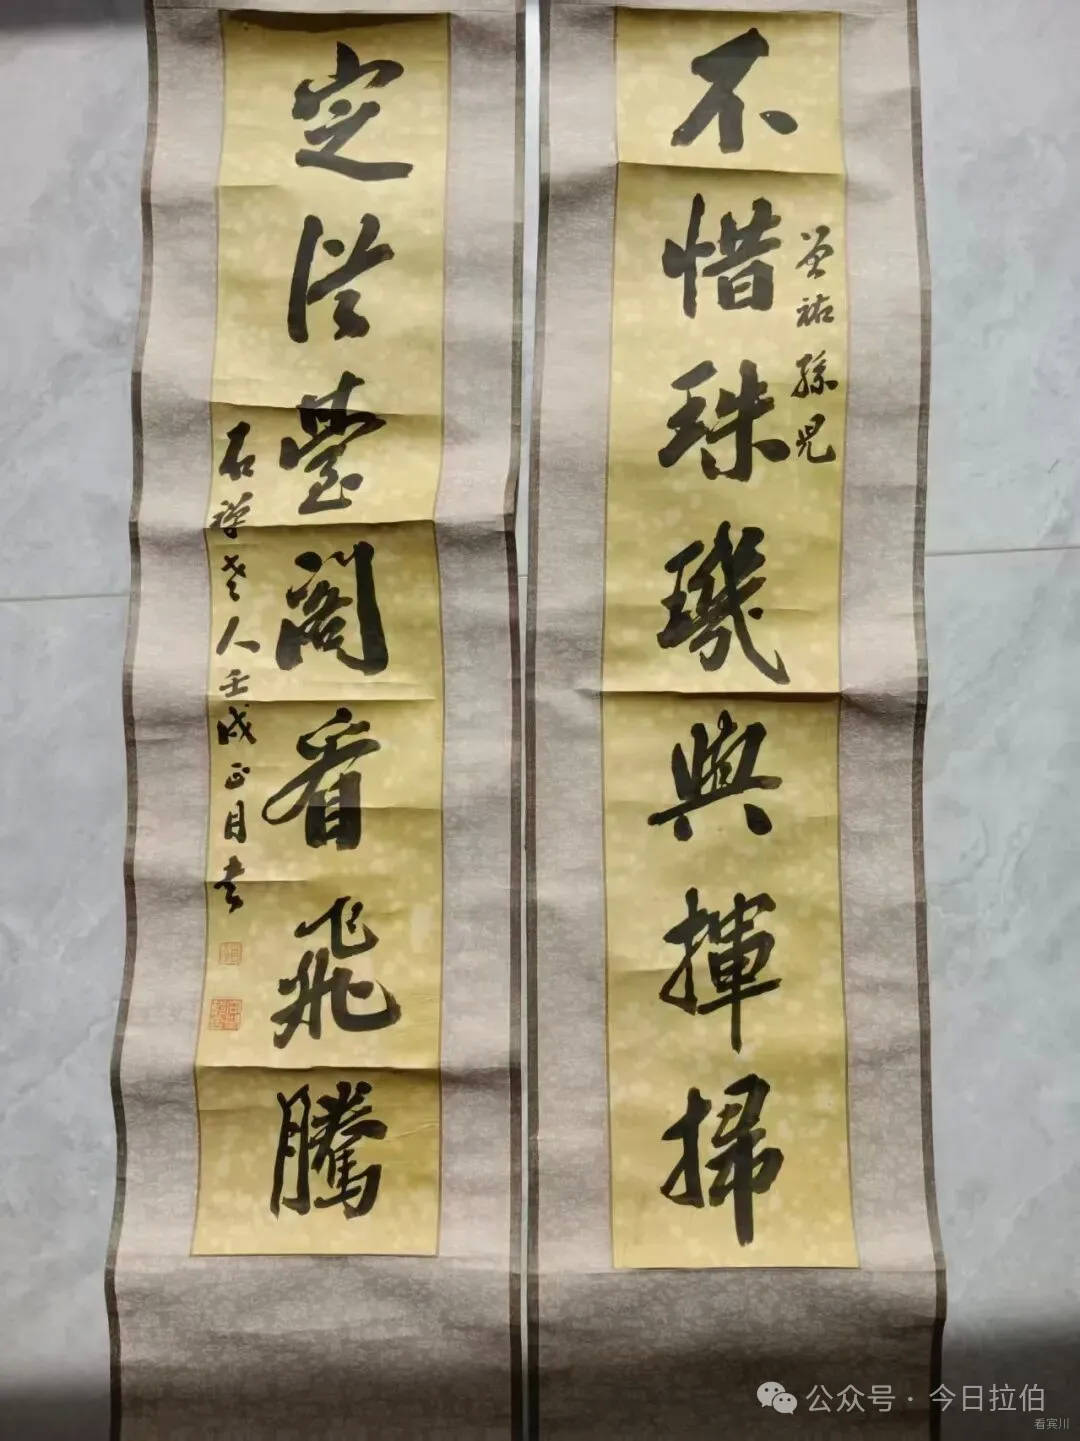 不惜珠璣與揮掃
曾祐孫兒
定從臺閣看飛騰
石禪老人壬戌正月書
公众号·今日拉伯
看宾川